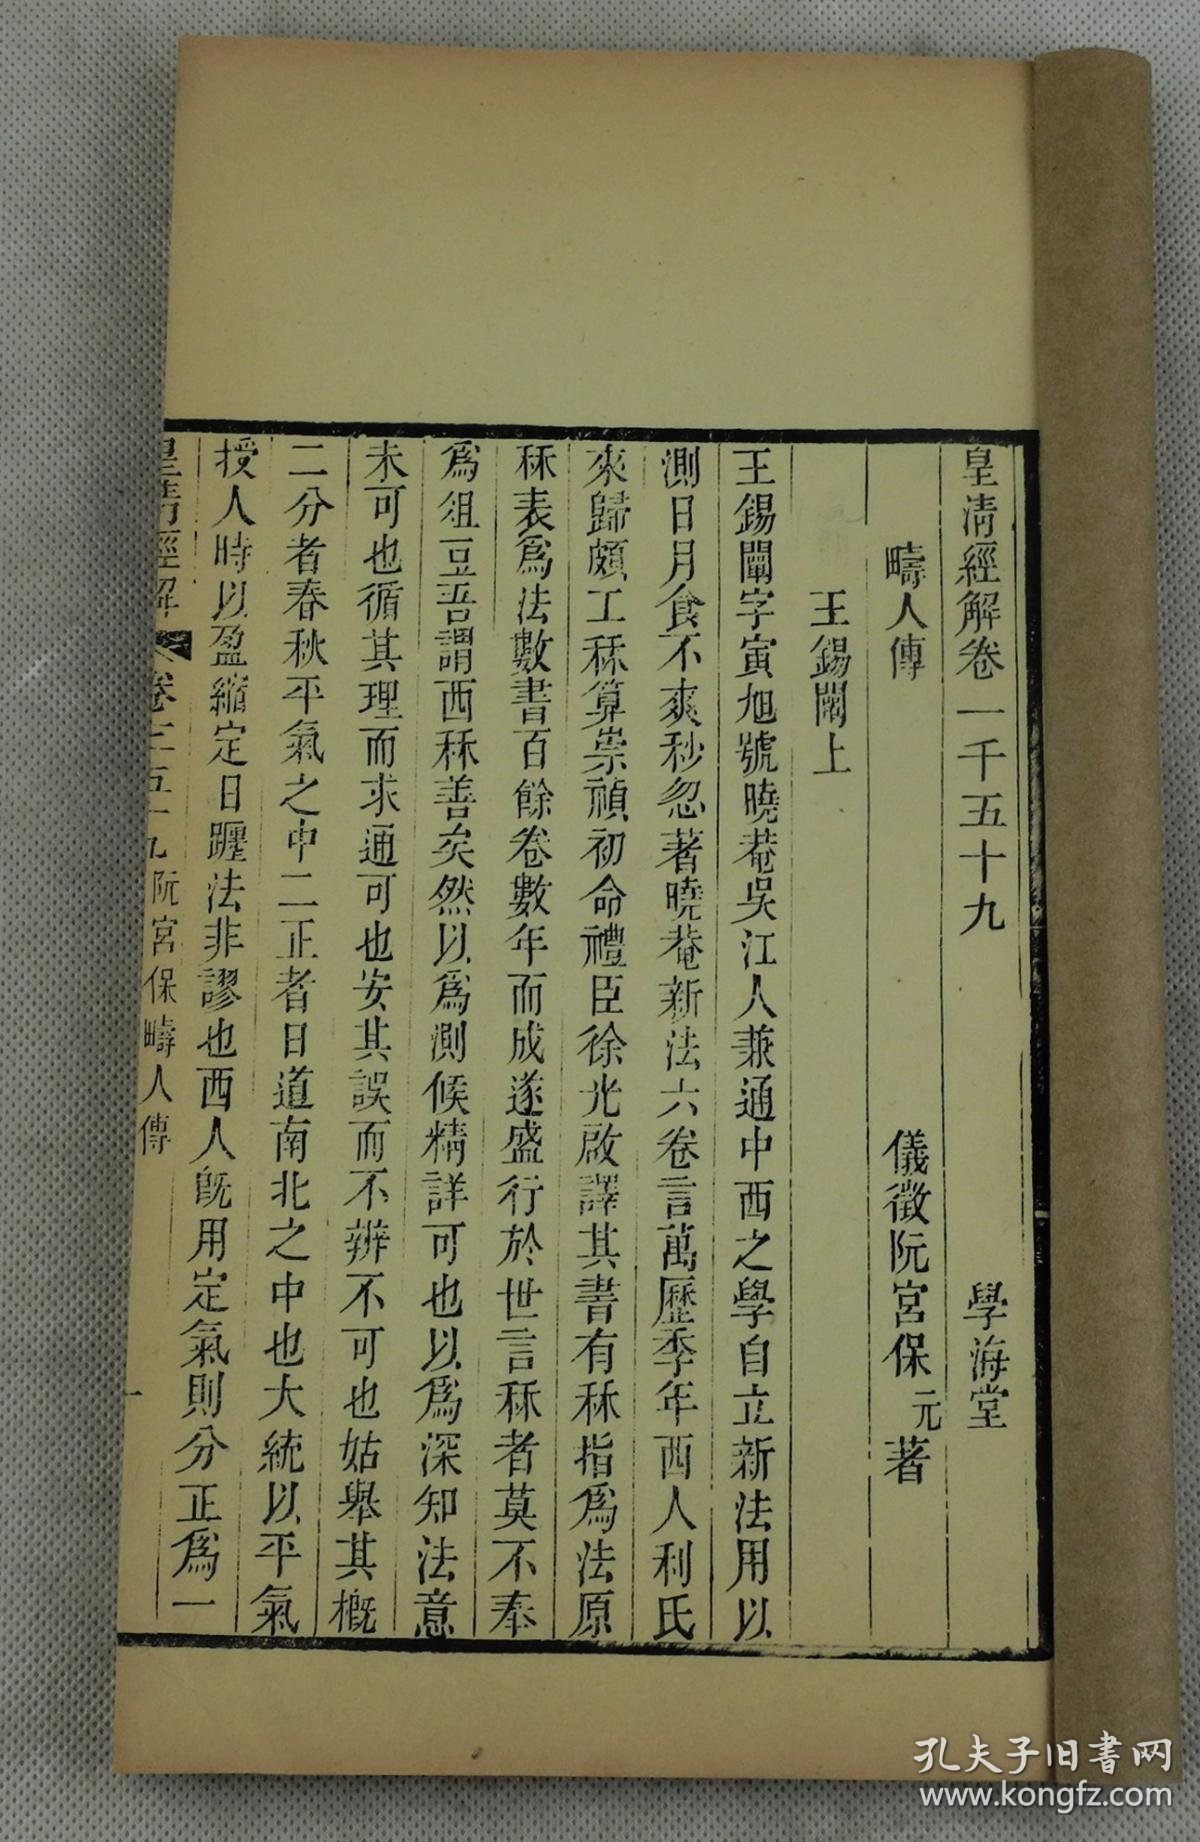 皇清經解卷一千五十九 學海堂
疇人傳 儀徵阮宮保元著
王錫闡上
王錫闡字寅旭號曉菴吳江人兼通中西之學自立新法用以
測日月食不爽秒忽著曉菴新法六卷言萬歷季年西人利氏
來歸頗工秝算崇禎初命禮臣徐光啟譯其書有秝指爲法原
秝表爲法數書百餘卷數年而成遂盛行於世言秝者莫不奉
爲俎豆吾謂西秝善矣然以爲測候精詳可也以爲深知法意
未可也循其理而求通可也安其誤而不辨不可也姑舉其概
二分者春秋平氣之中二正者日道南北之中也大統以平氣
授人時以盈縮定日躔法非謬也西人旣用定氣則分正爲一
皇清經解 卷一千五十九 阮宮保疇人傳 一
孔夫子旧書网
www.kongfz.com